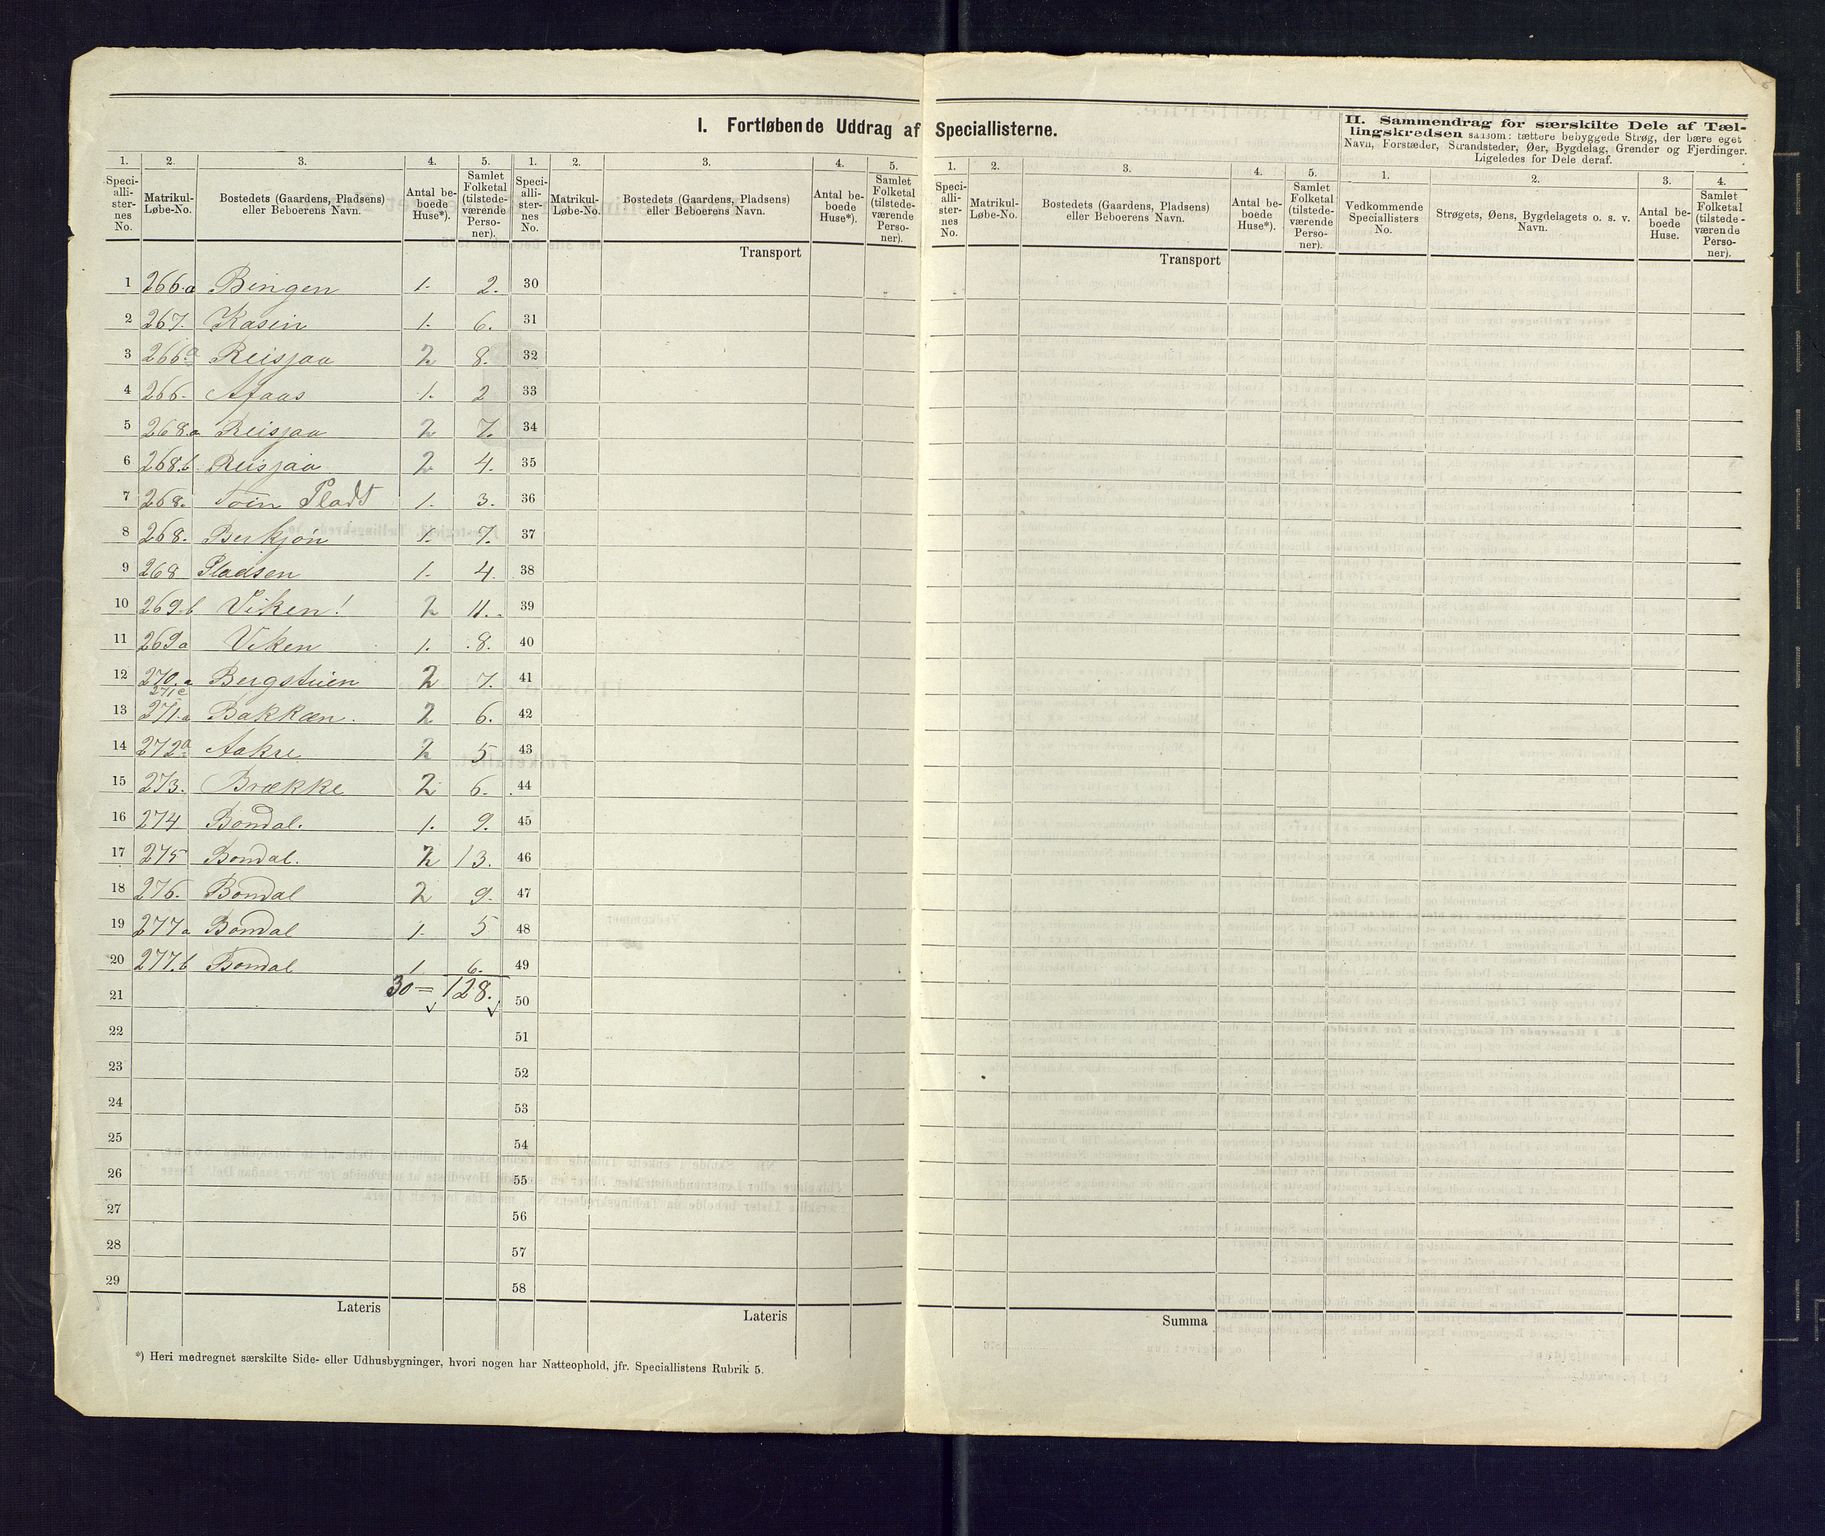 I. Fortløbende Uddrag af Speciallisterne.
II. Sammendrag for særskilte Dele af Tællingskredsen saasom: tættere bebyggede Strøg, der bære eget
Navn, Forstæder, Strandsteder, Øer, Bygdelag, Grender og Fjerdinger.
Ligeledes for Dele deraf.
1. 2. 3. 4. 5. 1. 2. 3. 4. 5. 1. 2. 3. 4. 5. 1. 2. 3. 4.
Speciallisternes No. Matrikul-Løbe-No. Bostedets (Gaardens, Pladsens) eller Beboerens Navn. Antal beboede Huse*). Samlet Folketal (tilstedeværende Personer).
Speciallisternes No. Matrikul-Løbe-No. Bostedets (Gaardens, Pladsens) eller Beboerens Navn. Antal beboede Huse*). Samlet Folketal (tilstedeværende Personer).
Speciallisternes No. Matrikul-Løbe-No. Bostedets (Gaardens, Pladsens) eller Beboerens Navn. Antal beboede Huse*). Samlet Folketal (tilstedeværende Personer).
Vedkommende Speciallisters No. Strøgets, Øens, Bygdelagets o. s. v. Navn. Antal beboede Huse. Samlet Folketal (tilstedeværende Personer).
Transport Transport
1 266.a Bingen 1. 2. 30
2 267. Kasin 1. 6. 31
3 266.a Reisjaa 2 8. 32
4 266. Afaas 1. 2 33
5 268.a Reisjaa 2 7. 34
6 268.b. Reisjaa 2 4. 35
7 268. Pladt 1. 3. 36
8 268. Berkjøn 1. 7. 37
9 268 Pladsen 1. 4. 38
10 269.b Viken! 2 11. 39
11 269a Viken 1. 8. 40
12 270.a 271c Bergstuen 2 7. 41
13 271.a Bakkæn. 2 6. 42
14 272a Aakre 2 5 43
15 273. Brække 2 6. 44
16 274 Bondal. 1. 9. 45
17 275 Bondal. 2 13. 46
18 276. Bondal 2 9. 47
19 277a Bondal 1. 5 48
20 277.b Bondal 1 6. 49
21 30 = 128. 50
22 51
23 52
24 53
25 54
26 55
27 56
28 57
29 58
Lateris Lateris Summa
*) Heri medregnet særskilte Side- eller Udhusbygninger, hvori nogen har Natteophold, jfr. Speciallistens Rubrik 5.